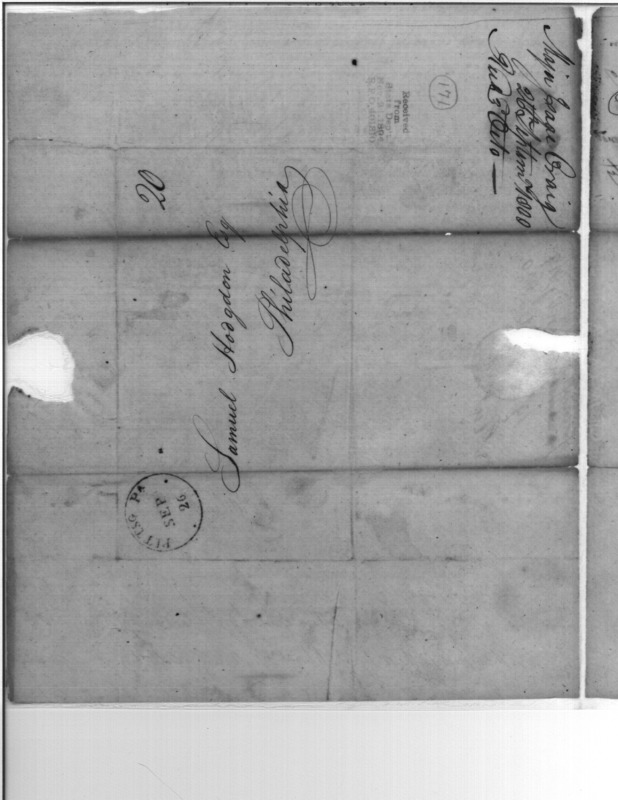 Majr Isaac Craig
26th Septemr 1800
Rec'd Octo —
(171)
Received
from
State Dept.
20
Samuel Hodgdon Esq
Philadelphia
PITTSG Pa
SEP
26